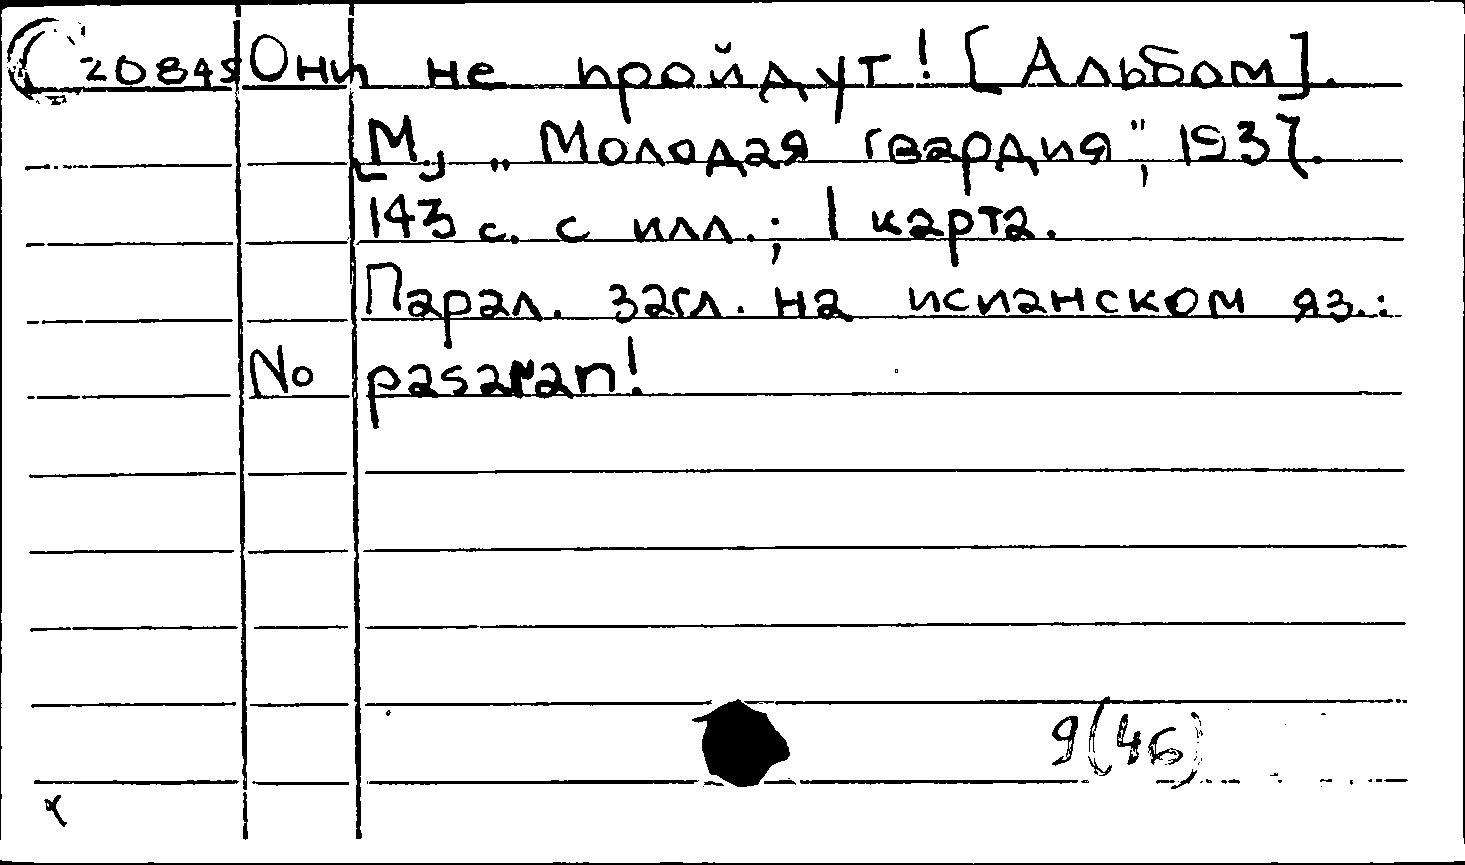 C20845 Они не пройдут! [Альбом].
[М., „Молодая гвардия", 1937.
143 с. с илл.; 1 карта.
Парал. загл. на испанском яз.:
No pasaran!
9(46)